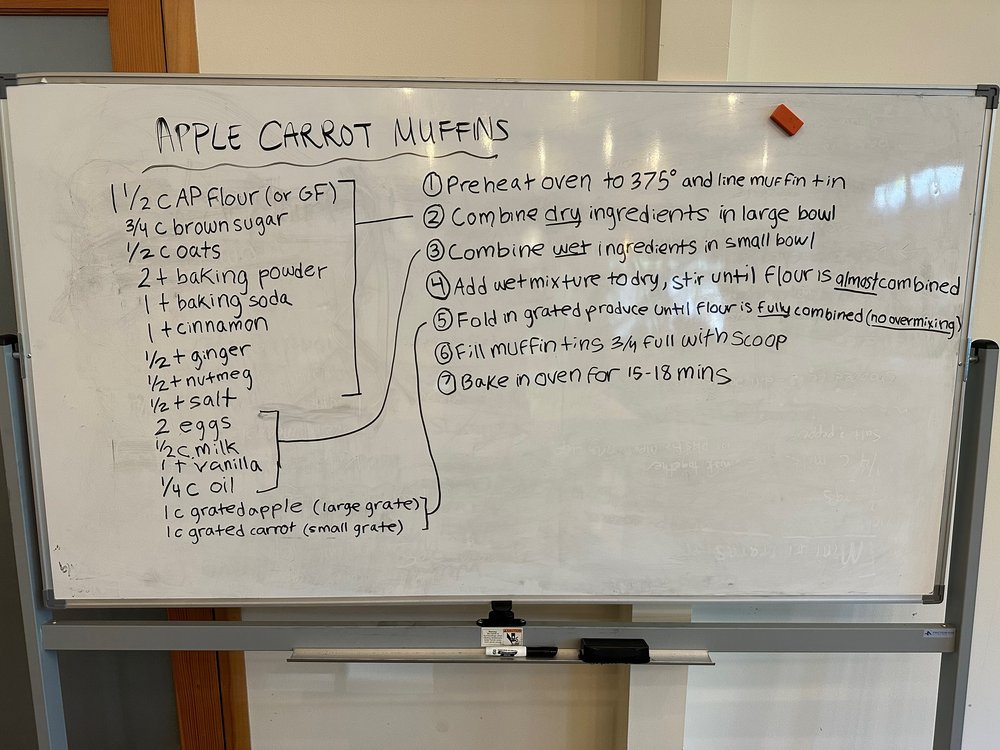 APPLE CARROT MUFFINS
1 1/2 C AP flour (or GF)
3/4 c brown sugar
1/2 c oats
2 t baking powder
1 t baking soda
1 t cinnamon
1/2 t ginger
1/2 t nutmeg
1/2 t salt
2 eggs
1/2 c. milk
1 t vanilla
1/4 c oil
1 c grated apple (large grate)
1 c grated carrot (small grate)
① Preheat oven to 375° and line muffin tin
② Combine dry ingredients in large bowl
③ Combine wet ingredients in small bowl
④ Add wet mixture to dry, stir until flour is almost combined
⑤ Fold in grated produce until flour is fully combined (no overmixing)
⑥ Fill muffin tins 3/4 full with scoop
⑦ Bake in oven for 15-18 mins